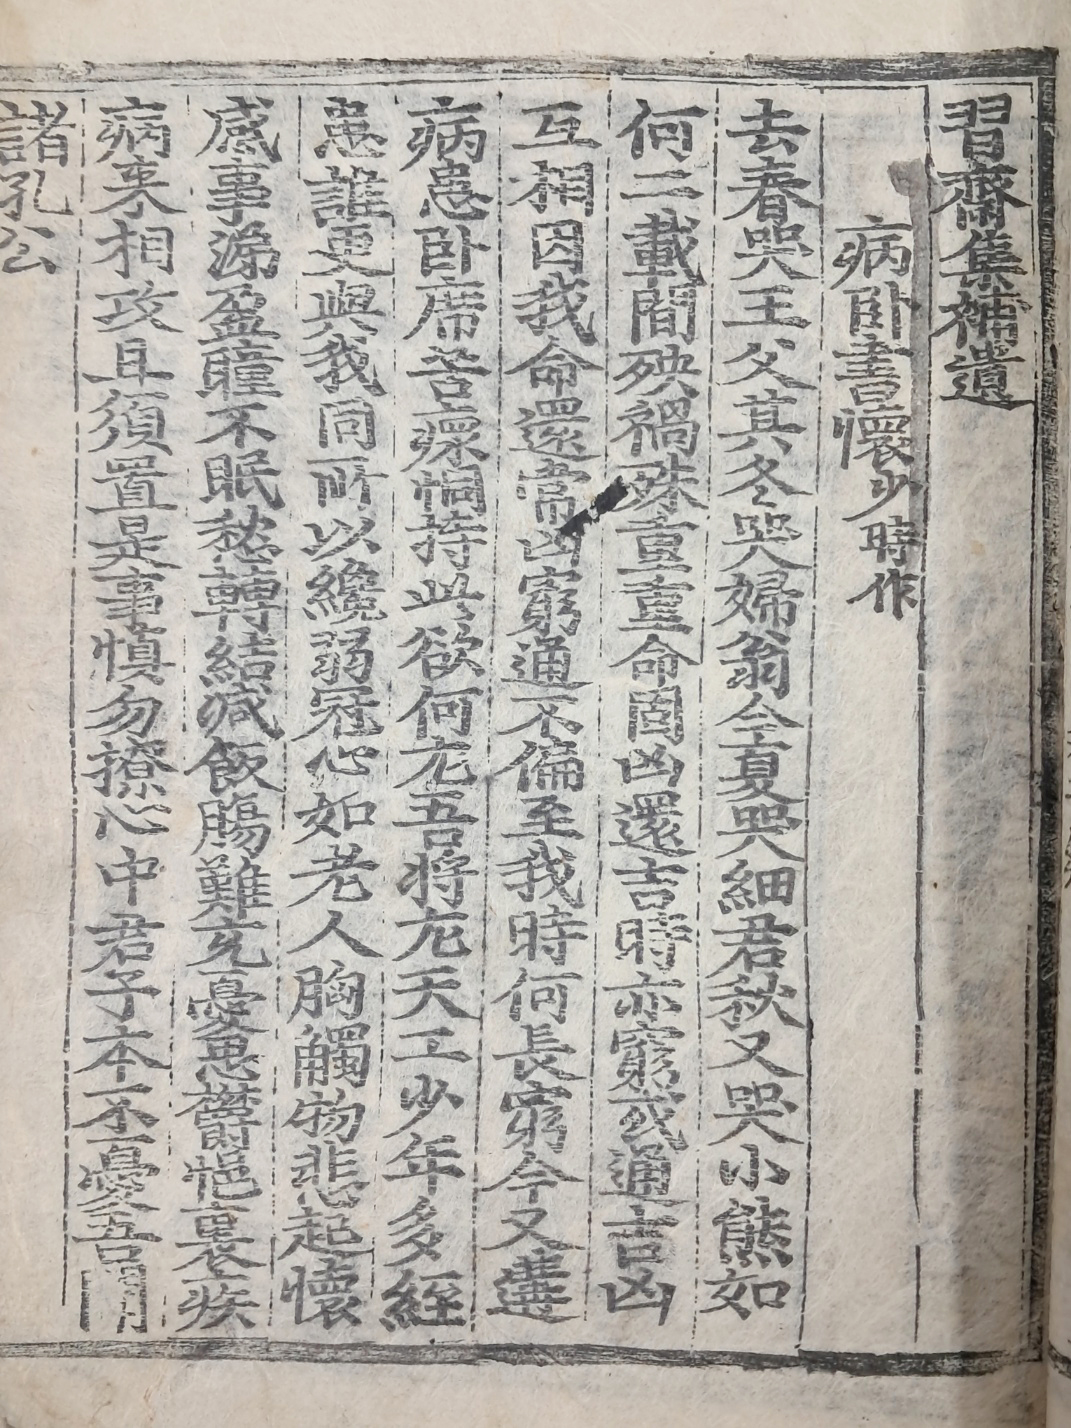 習齋集補遺
病臥書懷少時作
去春哭王父其冬哭婦翁今夏哭細君秋又哭小熊如
何二載間殃禍殊重重命固凶還吉時亦窮或通吉凶
互相因我命還常凶窮通不偏至我時何長窮今又遘
病患臥席苦瘝恫持此欲何尤吾將尤天工少年多經
患誰更與我同所以纔弱冠心如老人胸觸物悲起懷
感事涕盈瞳不眠愁轉結減飯腸難充憂患鬱悒裏疾
病來相攻且須置是事慎勿撩心中君子本不憂吾聞
諸孔公